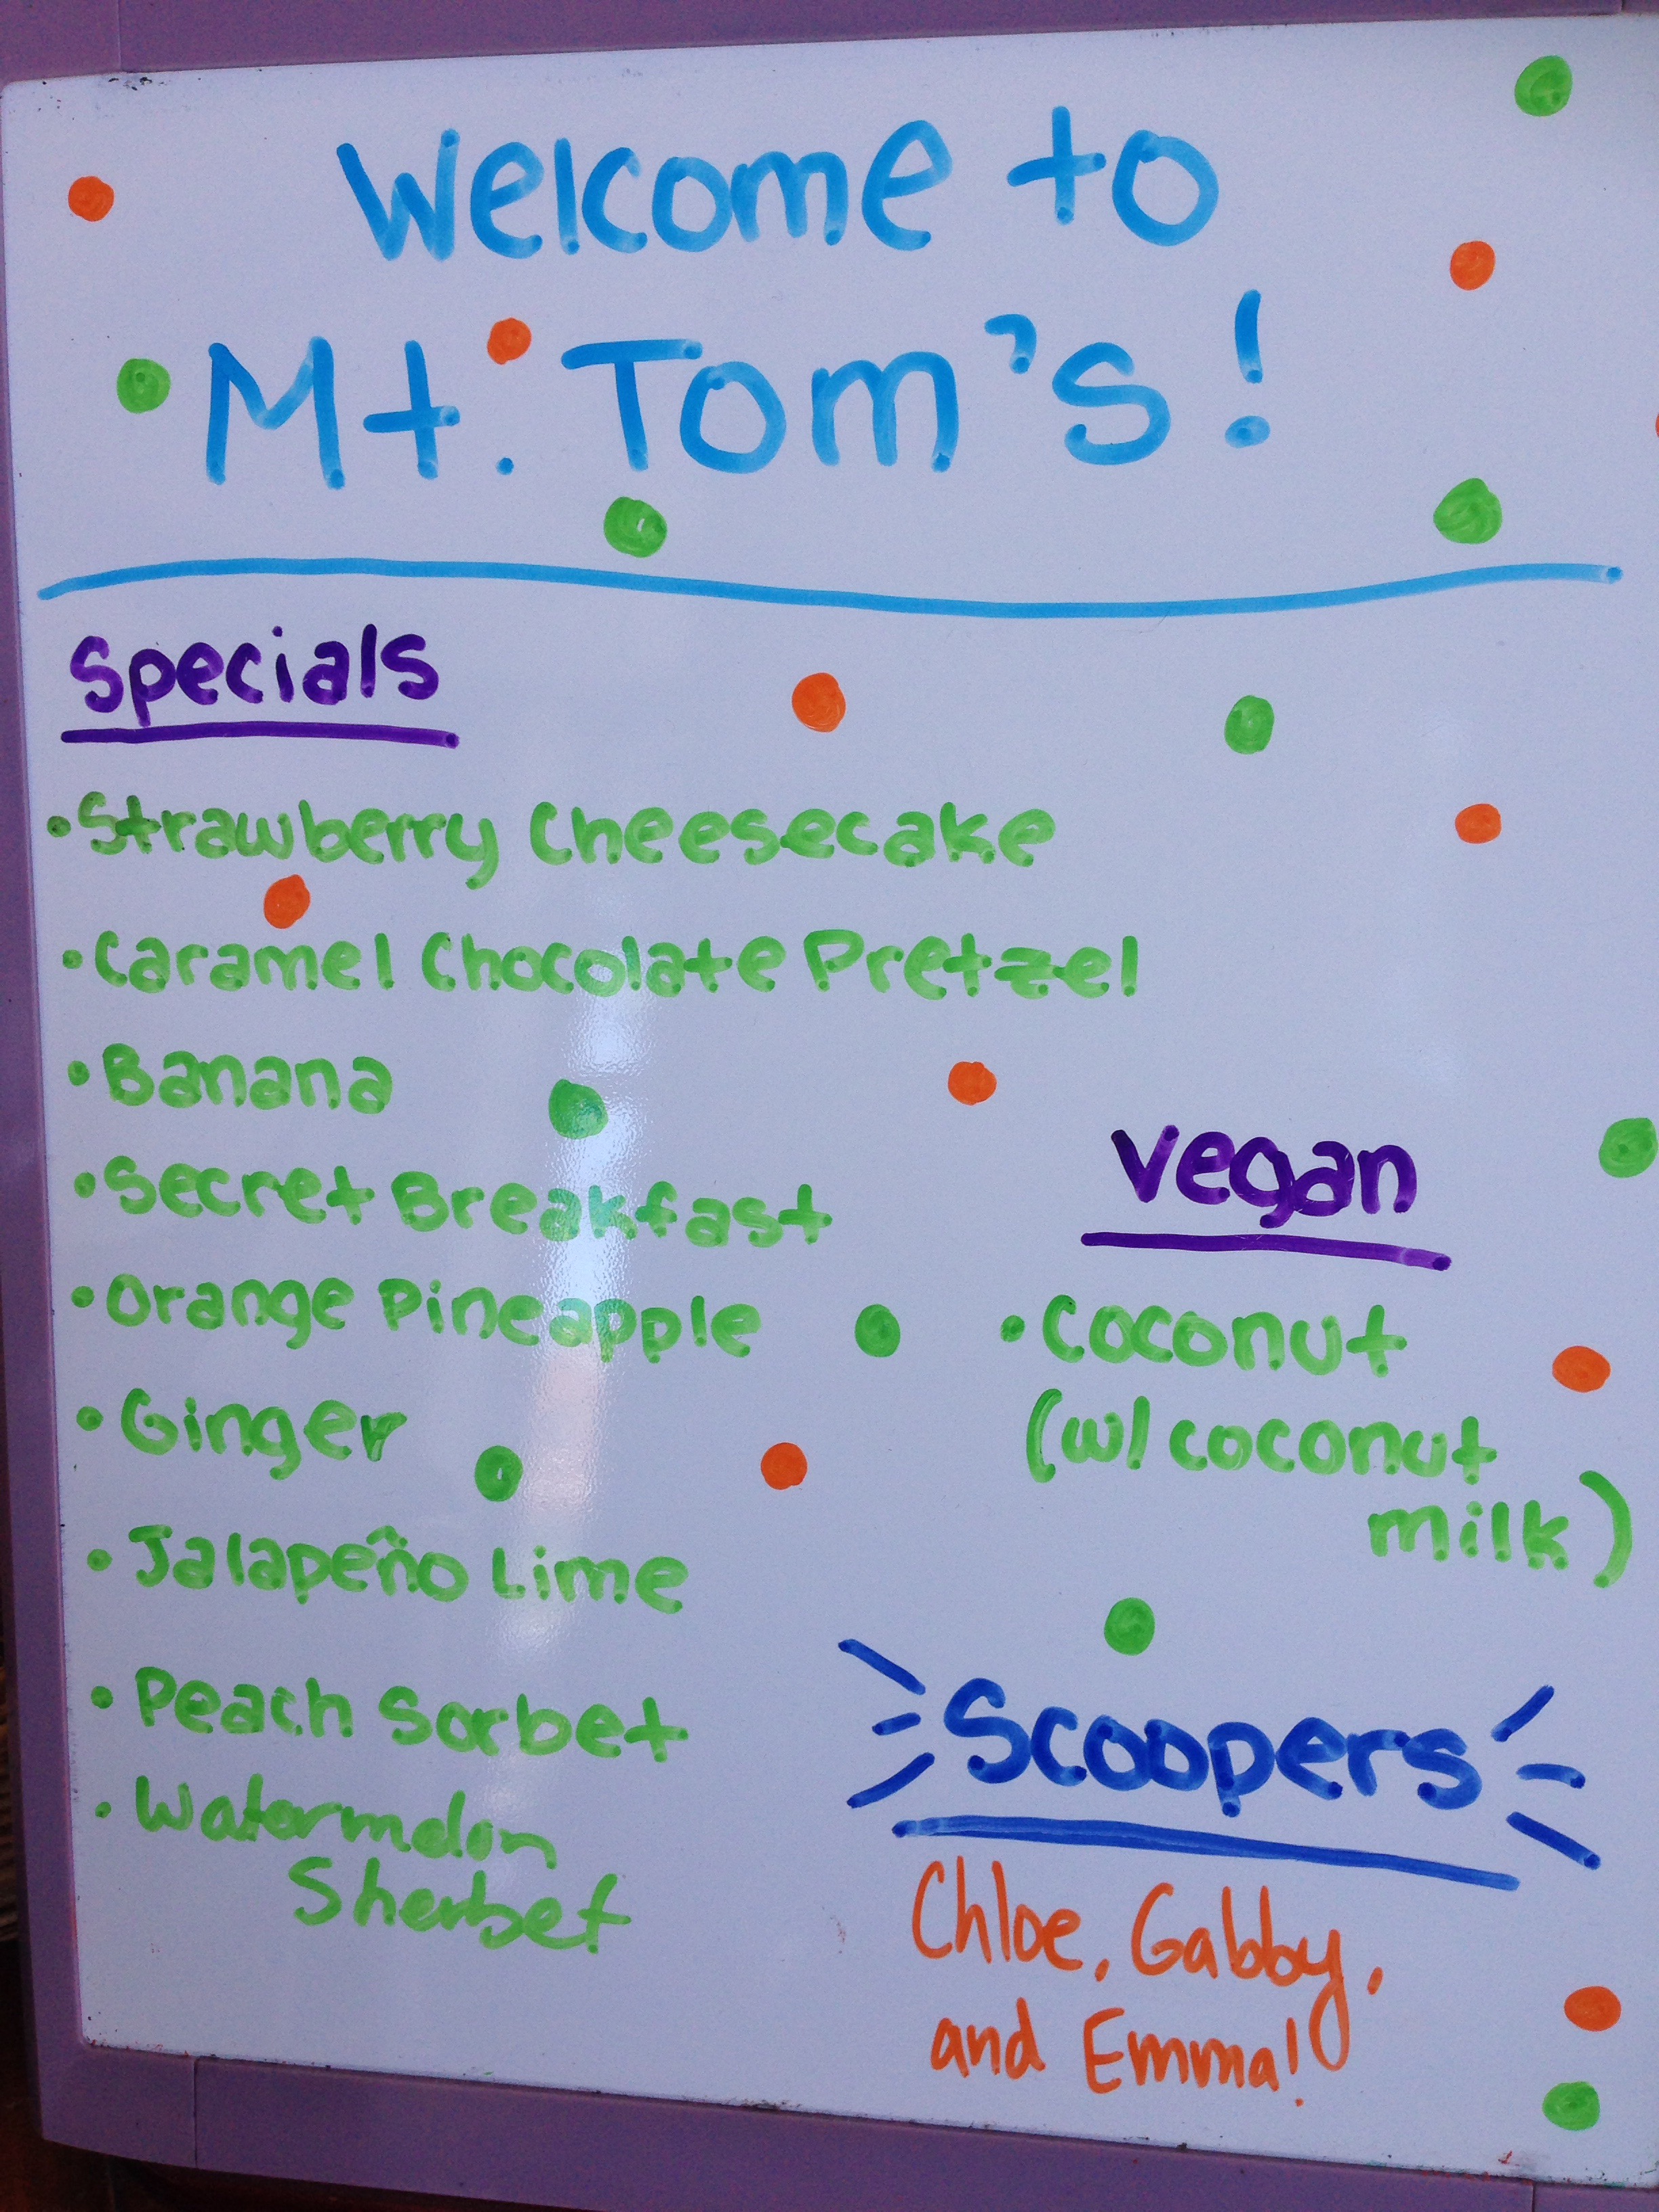 Welcome to
Mt. Tom's!
Specials
• Strawberry Cheesecake
• Caramel Chocolate Pretzel
• Banana
• Secret Breakfast
• Orange Pineapple
• Ginger
• Jalapeño Lime
• Peach Sorbet
• Watermelon
Sherbet
Vegan
• Coconut
(w/ coconut
milk)
Scoopers
Chloe, Gabby,
and Emma!